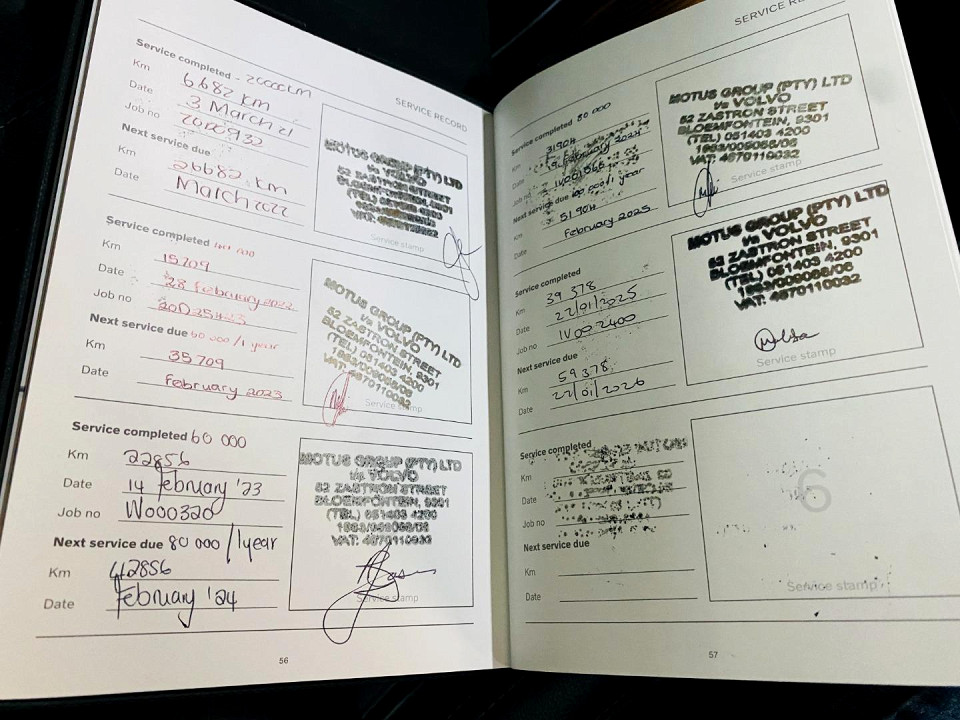 SERVICE RECORD
Service completed - 20000km
Km 6682 km
Date 3 March 21
Job no
Next service due
Km 26682 km
Date March 2022
MOTUS GROUP (PTY) LTD
t/a VOLVO
52 ZASTRON STREET
BLOEMFONTEIN, 9301
Service stamp
Service completed
Km 15709
Date 28 February 2022
Job no
Next service due 60 000/1 year
Km 35709
Date February 2023
MOTUS GROUP (PTY) LTD
t/a VOLVO
52 ZASTRON STREET
BLOEMFONTEIN, 9301
(TEL) 051403 4200
1983/009088/06
VAT: 4670110032
Service stamp
Service completed 60 000
Km 22856
Date 14 february '23
Job no W000320
Next service due 80 000/1year
Km 42856
Date february '24
MOTUS GROUP (PTY) LTD
t/a VOLVO
52 ZASTRON STREET
BLOEMFONTEIN, 9301
(TEL) 051403 4200
VAT: 4670110032
Service stamp
56
SERVICE
Service completed 80 000
Km 31904
Date February 2024
Job no
Next service due 100 000/1 year
Km 51904
Date February 2025
MOTUS GROUP (PTY) LTD
t/a VOLVO
52 ZASTRON STREET
BLOEMFONTEIN, 9301
(TEL) 051403 4200
VAT: 4670110032
Service stamp
Service completed
Km 39 378
Date 22/01/2025
Job no IV002400
Next service due
Km 59378
Date 22/01/2026
MOTUS GROUP (PTY) LTD
t/a VOLVO
52 ZASTRON STREET
BLOEMFONTEIN, 9301
(TEL) 051403 4200
VAT: 4670110032
Service stamp
Service completed
Km
Date
Job no
Next service due
Km
Date
6
Service stamp
57